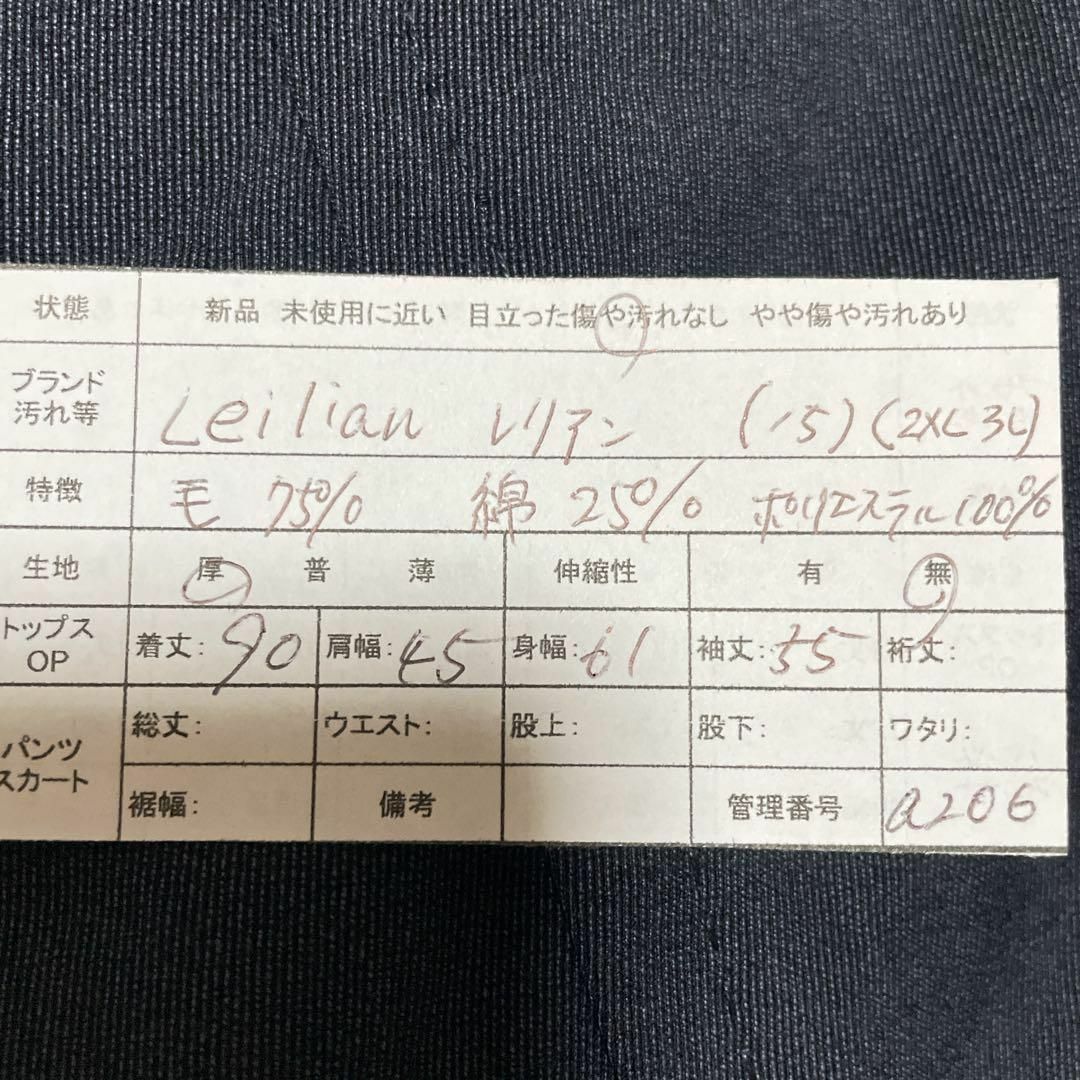 状態 新品 未使用に近い 目立った傷や汚れなし やや傷や汚れあり
ブランド
汚れ等
Leilian レリアン (15) (2XL 3L)
特徴 毛 75% 綿 25% ポリエステル100%
生地 厚 普 薄 伸縮性 有 無
トップス
OP
着丈: 90 肩幅: 45 身幅: 61 袖丈: 55 裄丈:
パンツ
スカート
総丈: ウエスト: 股上: 股下: ワタリ:
裾幅: 備考 管理番号 a206